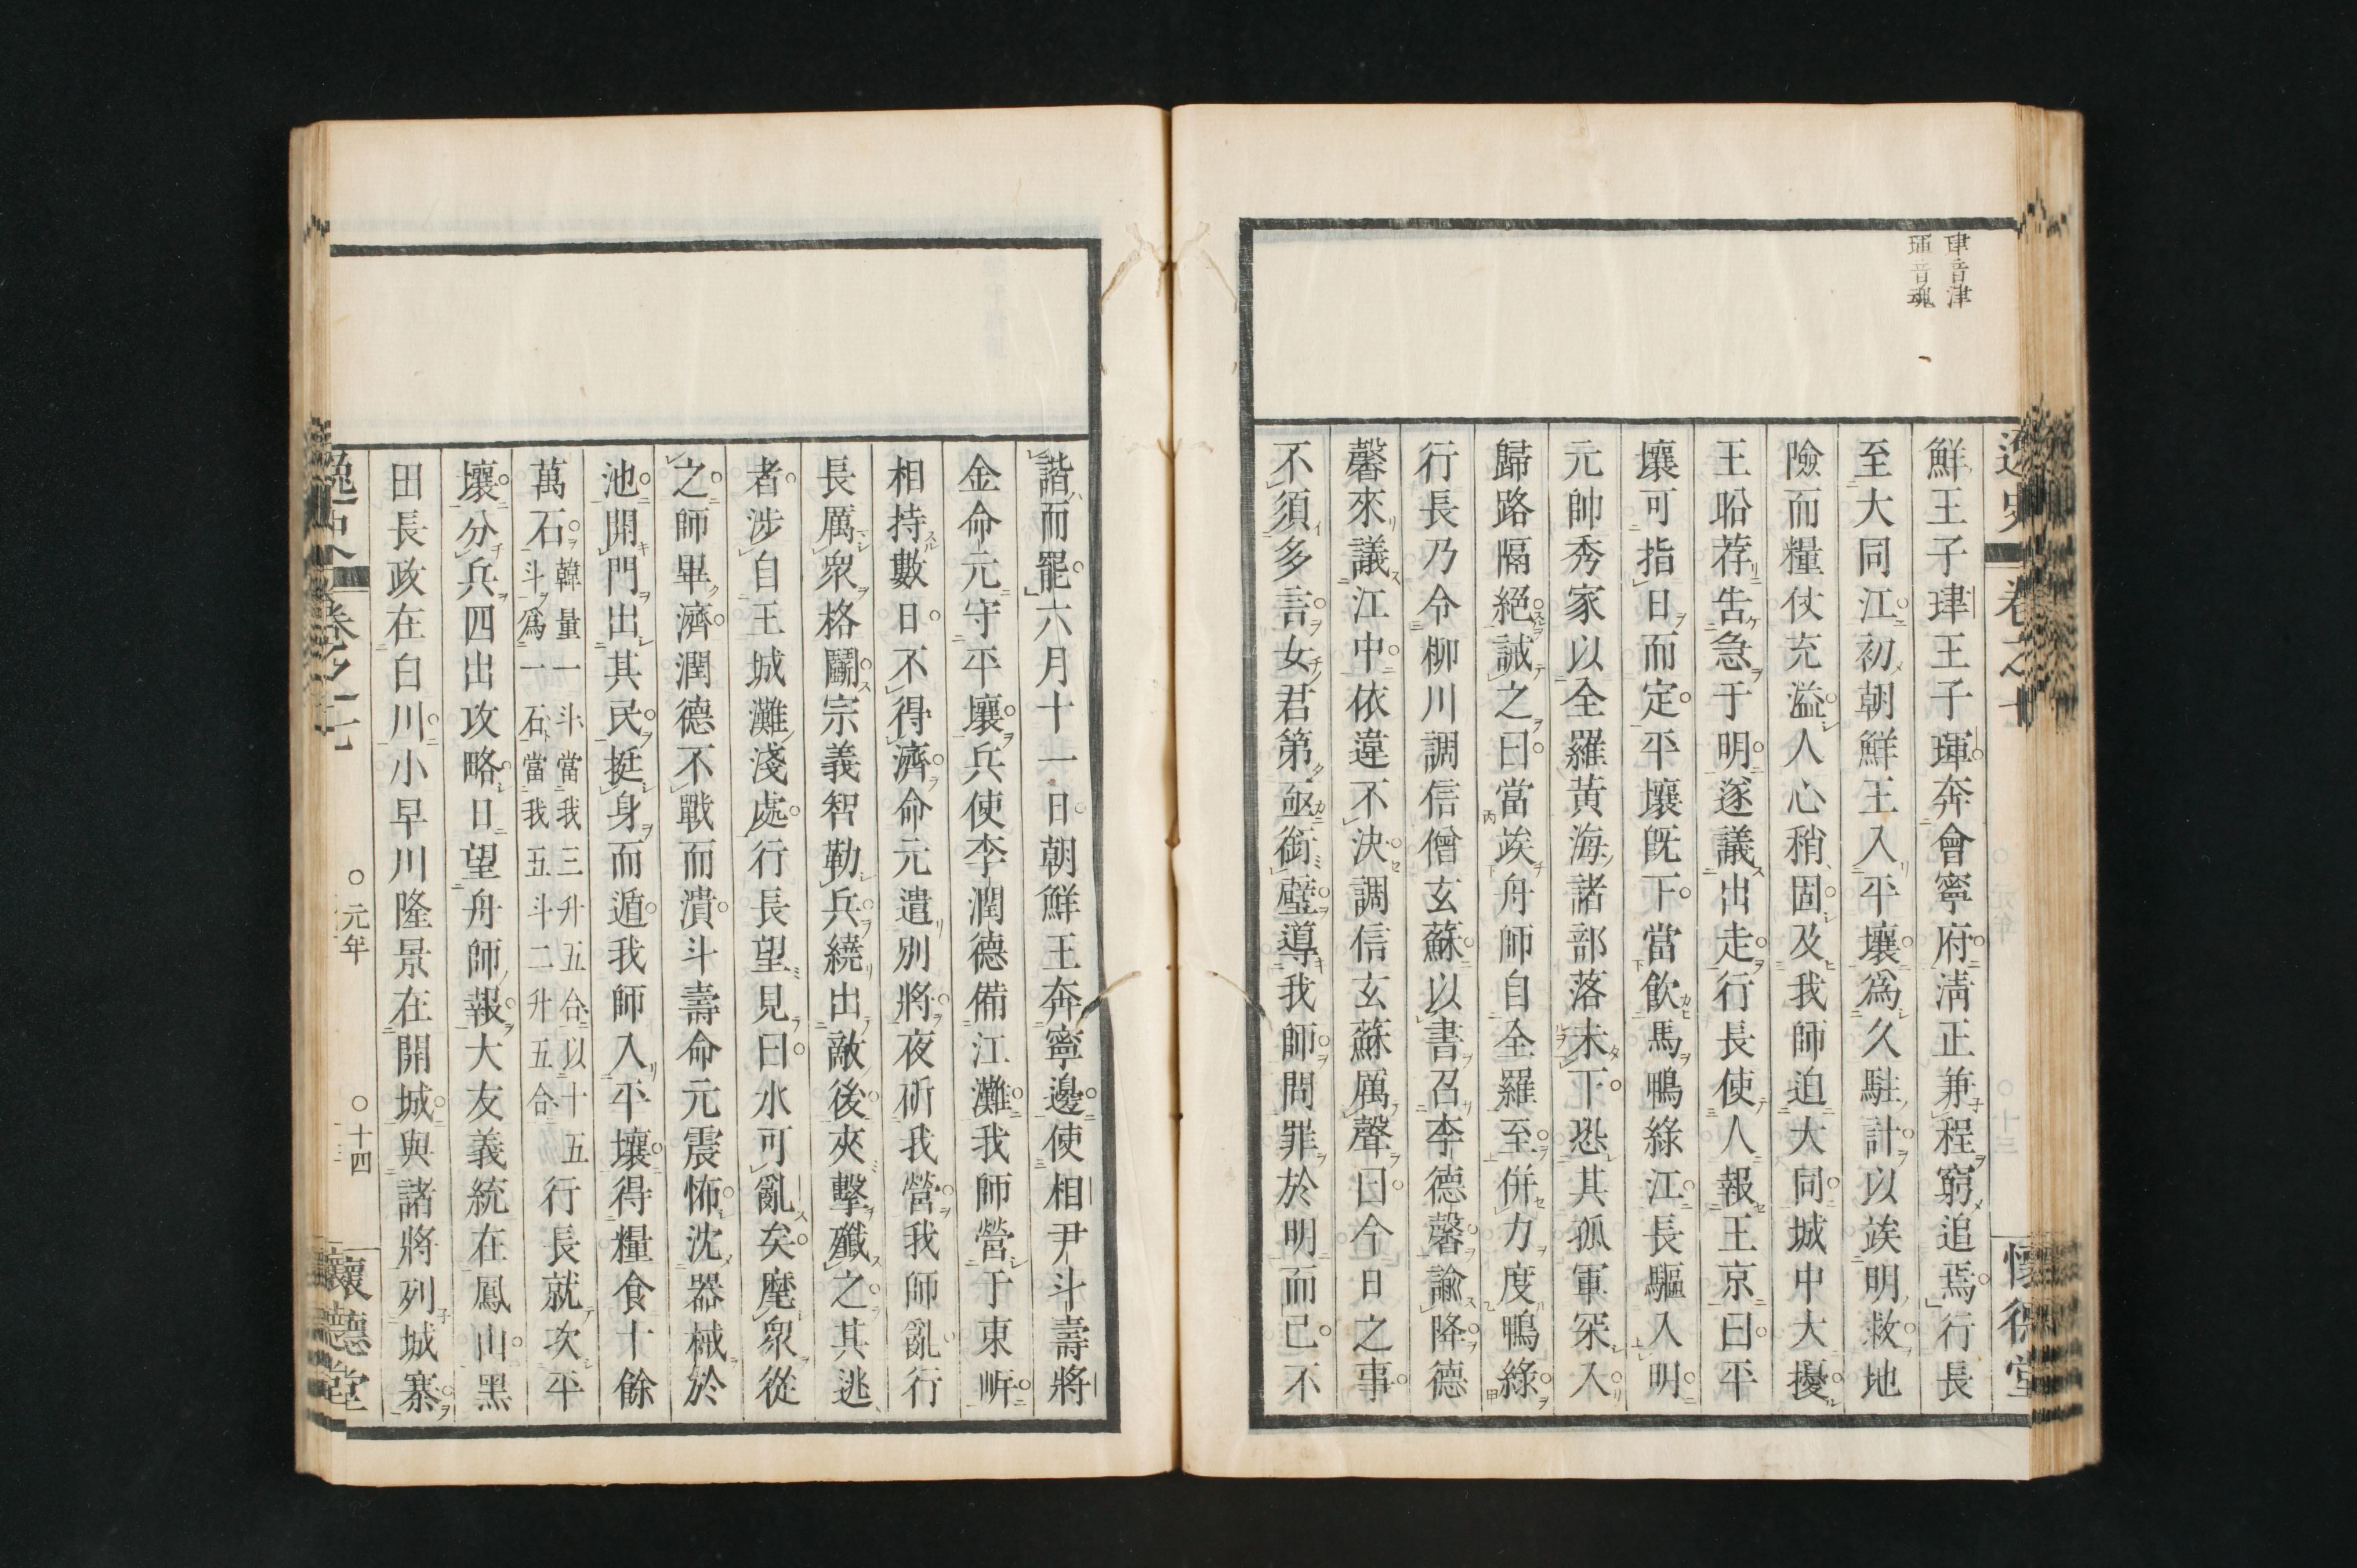 珒音津
琿音魂
鮮王子珒王子琿奔會寧府淸正兼程窮追焉行長
至大同江初朝鮮王入平壤爲久駐計以竢明救地
險而糧仗充溢人心稍固及我師迫大同城中大擾
王昖荐告急于明遂議出走行長使人報王京曰平
壤可指日而定平壤旣下當飮馬鴨綠江長驅入明
元帥秀家以全羅黃海諸部落未下恐其孤軍罙入
歸路隔絕誡之曰當竢舟師自全羅至併力度鴨綠
行長乃令柳川調信僧玄蘇以書召李德馨諭降德
馨來議江中依違不決調信玄蘇厲聲曰今日之事
不須多言女君第亟銜璧導我師問罪於明而已不
諧而罷六月十一日朝鮮王奔寧邊使相尹斗壽將
金命元守平壤兵使李潤德備江灘我師營于東岍
相持數日不得濟命元遣別將夜斫我營我師亂行
長厲衆格鬭宗義智勒兵繞出敵後夾擊殲之其逃
者涉自王城灘淺處行長望見曰水可亂矣麾衆從
之師畢濟潤德不戰而潰斗壽命元震怖沈器械於
池開門出其民挺身而遁我師入平壤得糧食十餘
萬石韓量一斗當我三升五合以十五斗爲一石當我五斗二升五合行長就次平
壤分兵四出攻略日望舟師報大友義統在鳳山黑
田長政在白川小早川隆景在開城與諸將列城寨
逸史 卷之七 ○元年 ○十四 懷德堂